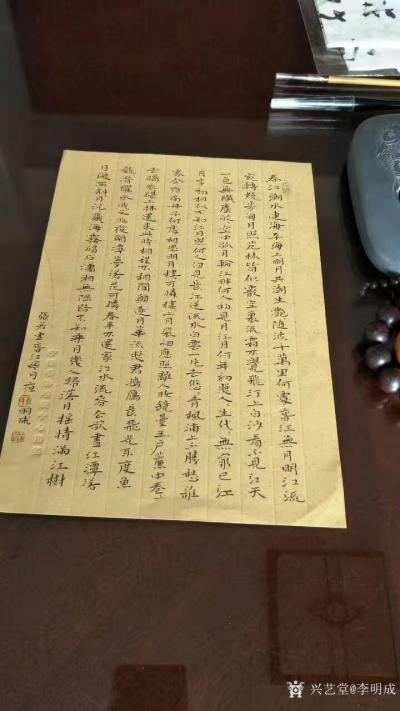 春江潮水連海平海上明月共潮生灩隨波千萬里何處春江無月明江流
宛轉繞芳甸月照花林皆似霰空里流霜不覺飛汀上白沙看不見江天
一色無纖塵皎空中孤月輪江畔何人初見月江月何年初照人生代無窮已江
月年初相似不知江月照何人但見長江送流水白雲一片去悠青楓浦上不勝愁誰
家今夜扁舟子何處相思明月樓可憐樓上月裴回應照離人妝鏡臺玉户簾中卷不
去搗衣砧上拂還來此時相望不相聞願逐月華流照君鴻雁長飛光不度魚
龍潛躍水成文昨夜閑潭夢落花可憐春半不還家江水流春去欲盡江潭落
月復西斜月沉藏海霧碣石瀟湘無限路不知乘月幾人歸落月摇情滿江樹
張若虛春江花月夜 明成
兴艺堂@李明成